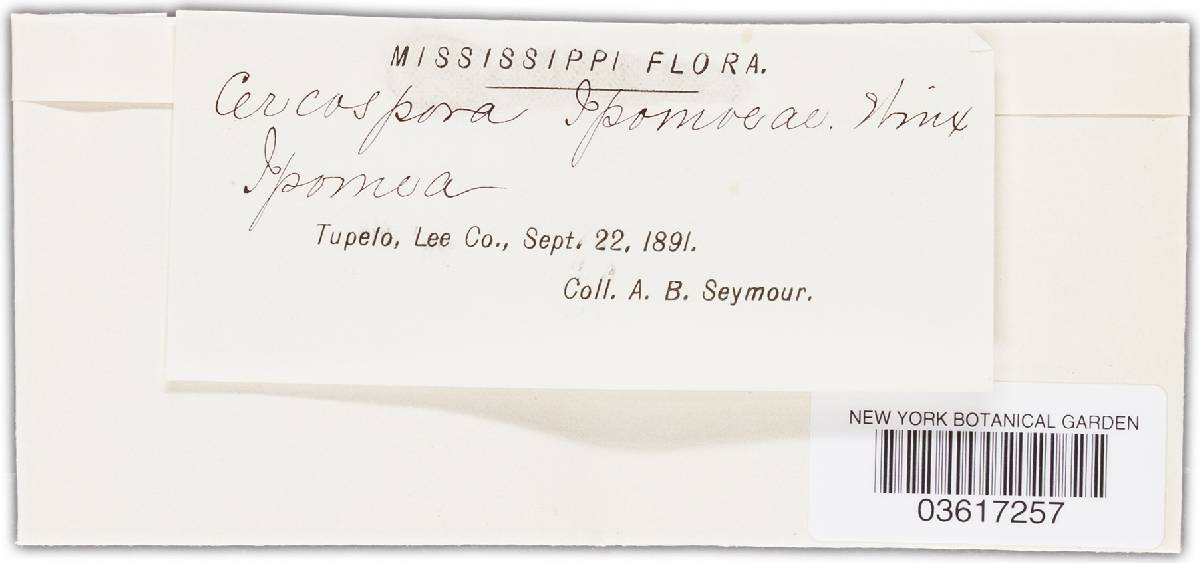 MISSISSIPPI FLORA.
Cercospora Ipomoeae. Winx
Ipomoea
Tupelo, Lee Co., Sept. 22, 1891.
Coll. A. B. Seymour.
NEW YORK BOTANICAL GARDEN
03617257